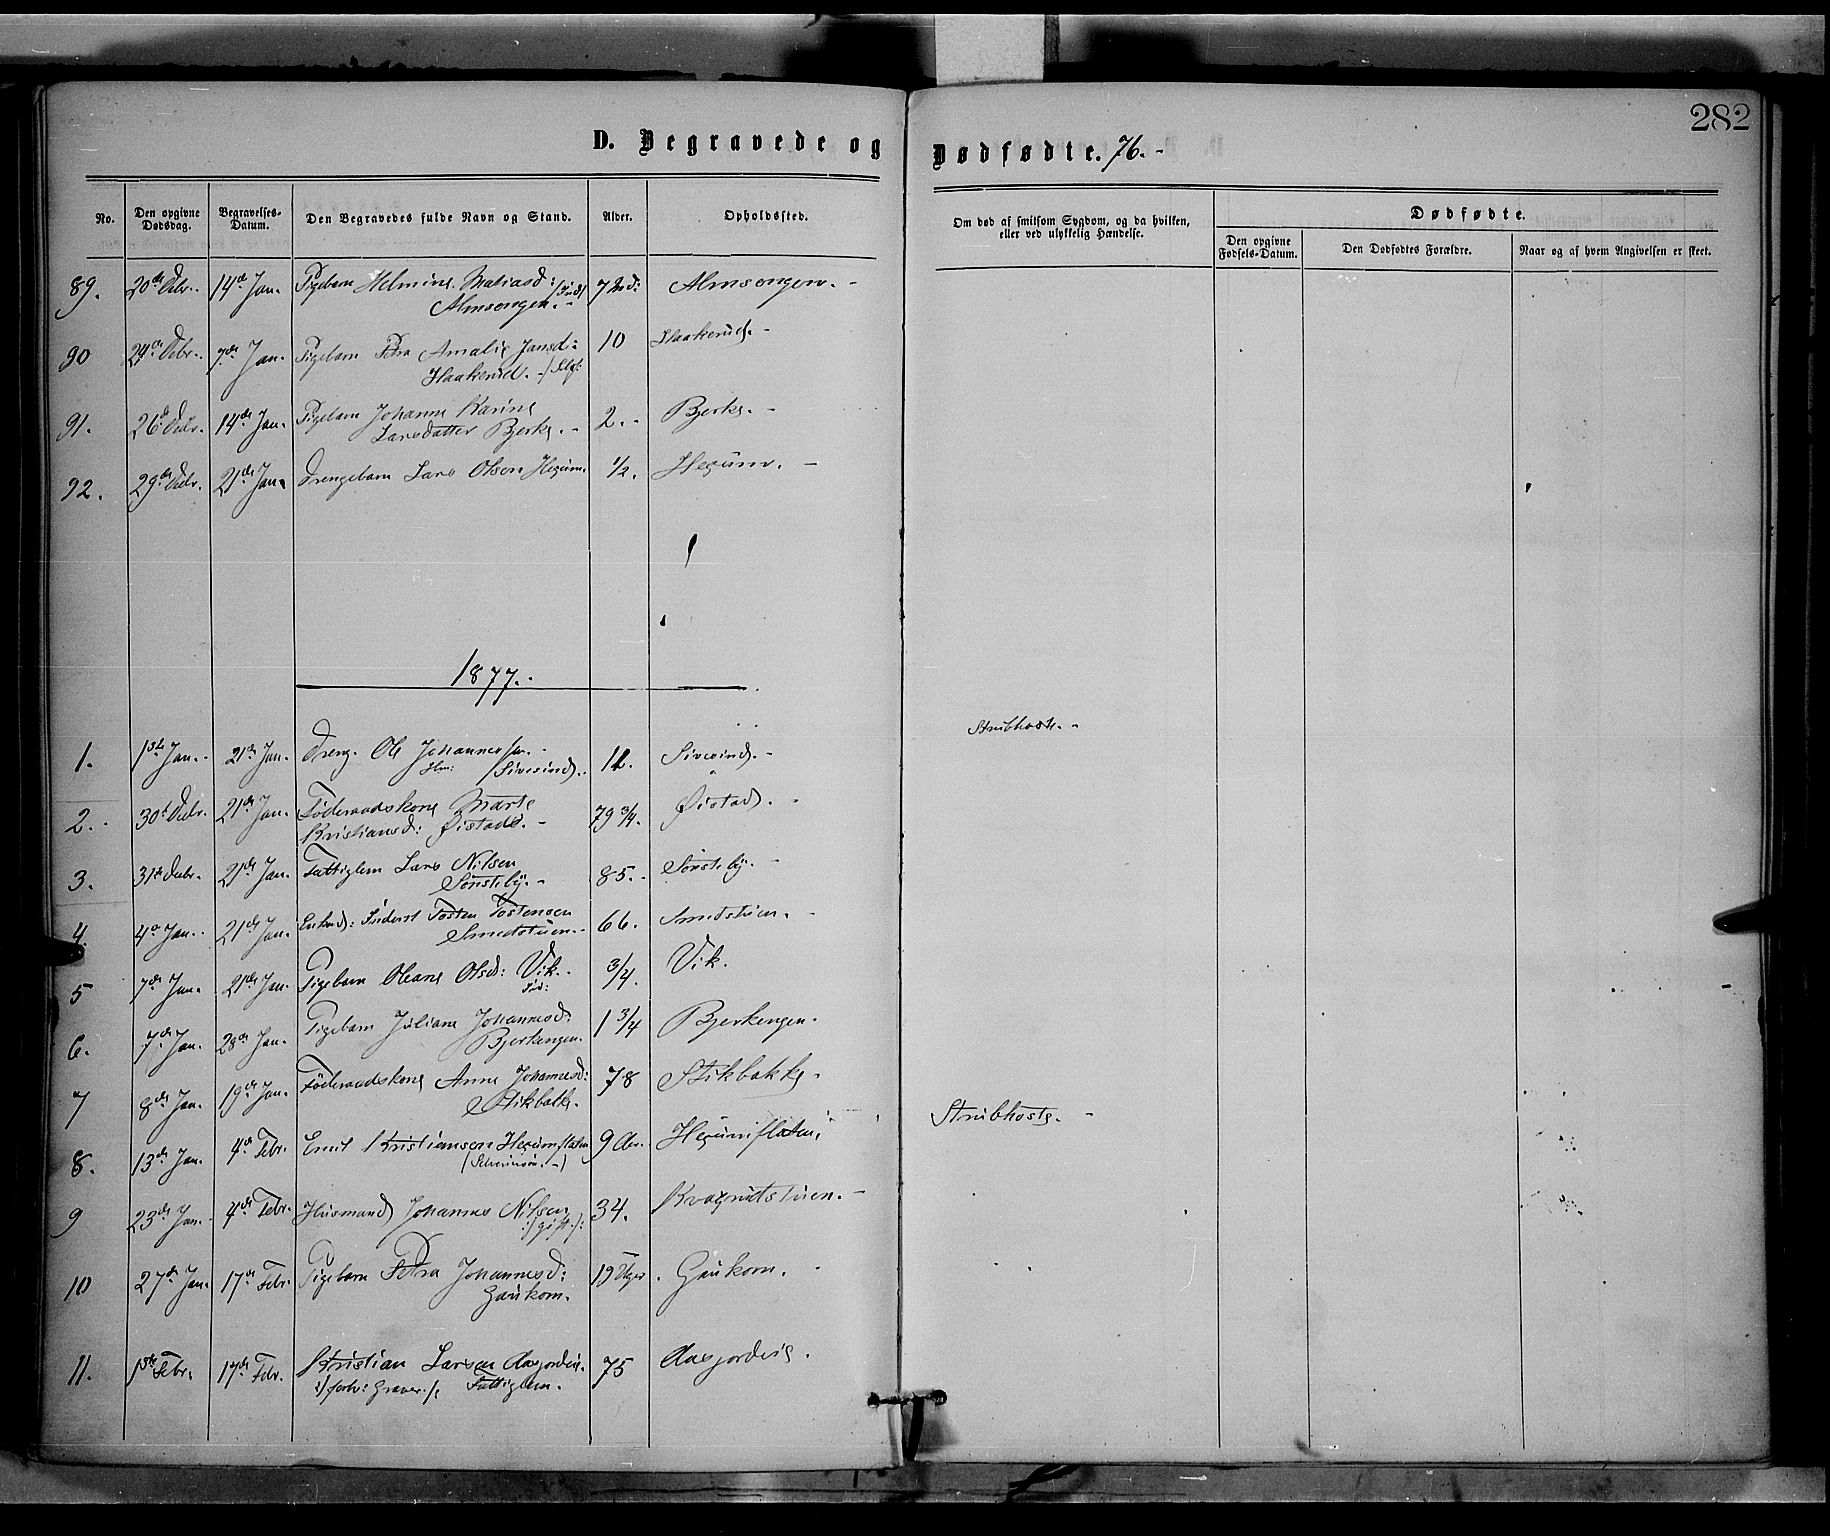 282
D. Begravede og Dødfødte. 76.-
No.
Den opgivne Dødsdag.
Begravelses-Datum.
Den Begravedes fulde Navn og Stand.
Alder.
Opholdssted.
Om død af smitsom Sygdom, og da hvilken, eller ved ulykkelig Hændelse.
Dødfødte.
Den opgivne Fødsels-Datum.
Den Dødfødtes Forældre.
Naar og af hvem Angivelsen er skeet.
89. 20de Debr. 14de Jan. Pigebarn Helmine Matiasd: 7 Md: Almsengen.-
Almsengen.-
90 24de Debr. 7de Jan. Pigebarn Petra Amalie Jansd: 10 Haakerud.-
Haakerud.-
91. 26de Debr. 14de Jan. Pigebarn Johanne Karine 2.- Bjerke.-
Larsdatter Bjerke.-
92. 29de Debr. 21de Jan. Drengebarn Lars Olsen Hegum. 1/2. Hegum.-
1877.-
1. 1ste Jan. 21de Jan. Dreng Ole Johannessen.- 11. Sivesind.- Strubhoste.-
Sivesind.
2. 30te Debr. 21de Jan. Föderaadskone Marte 79 3/4. Øistad.-
Kristiansd: Øistad.-
3. 31te Debr. 21de Jan. Fattiglem Lars Nilsen 85.- Sönsteby.-
Sönsteby.-
4. 4de Jan. 21de Jan. Enkmd: Inderst Tosten Tostensen 66. Smedstuen.-
Smedstuen.-
5 7de Jan. 21de Jan. Pigebarn Oleane Olsd: Vik. 3/4. Vik.
6. 7de Jan. 28de Jan. Pigebarn Juliane Johannesd: 1 3/4 Bjerkengen.
Bjerkengen.
7 8de Jan. 19de Jan. Föderaadskone Anne Johannesd: 78 Stikbakke.
Stikbakke.
8. 13de Jan. 4de Febr. Emil Kristiansen Hegumflaten 9 Aar. Hegumflaten. Strubhoste.-
9 23de Jan. 4de Febr. Husmand Johannes Nilsen 34. Kvagrudstuen.-
:/gift./:
10 27de Jan. 17de Febr. Pigebarn Petra Johannesd: 19 Uger. Gaukom.
Gaukom.
11. 1ste Febr. 17de Febr. Kristian Larsen Aasjordeie. 75 Aasjordeie.
:/forhv: Graver./: Fattiglem.